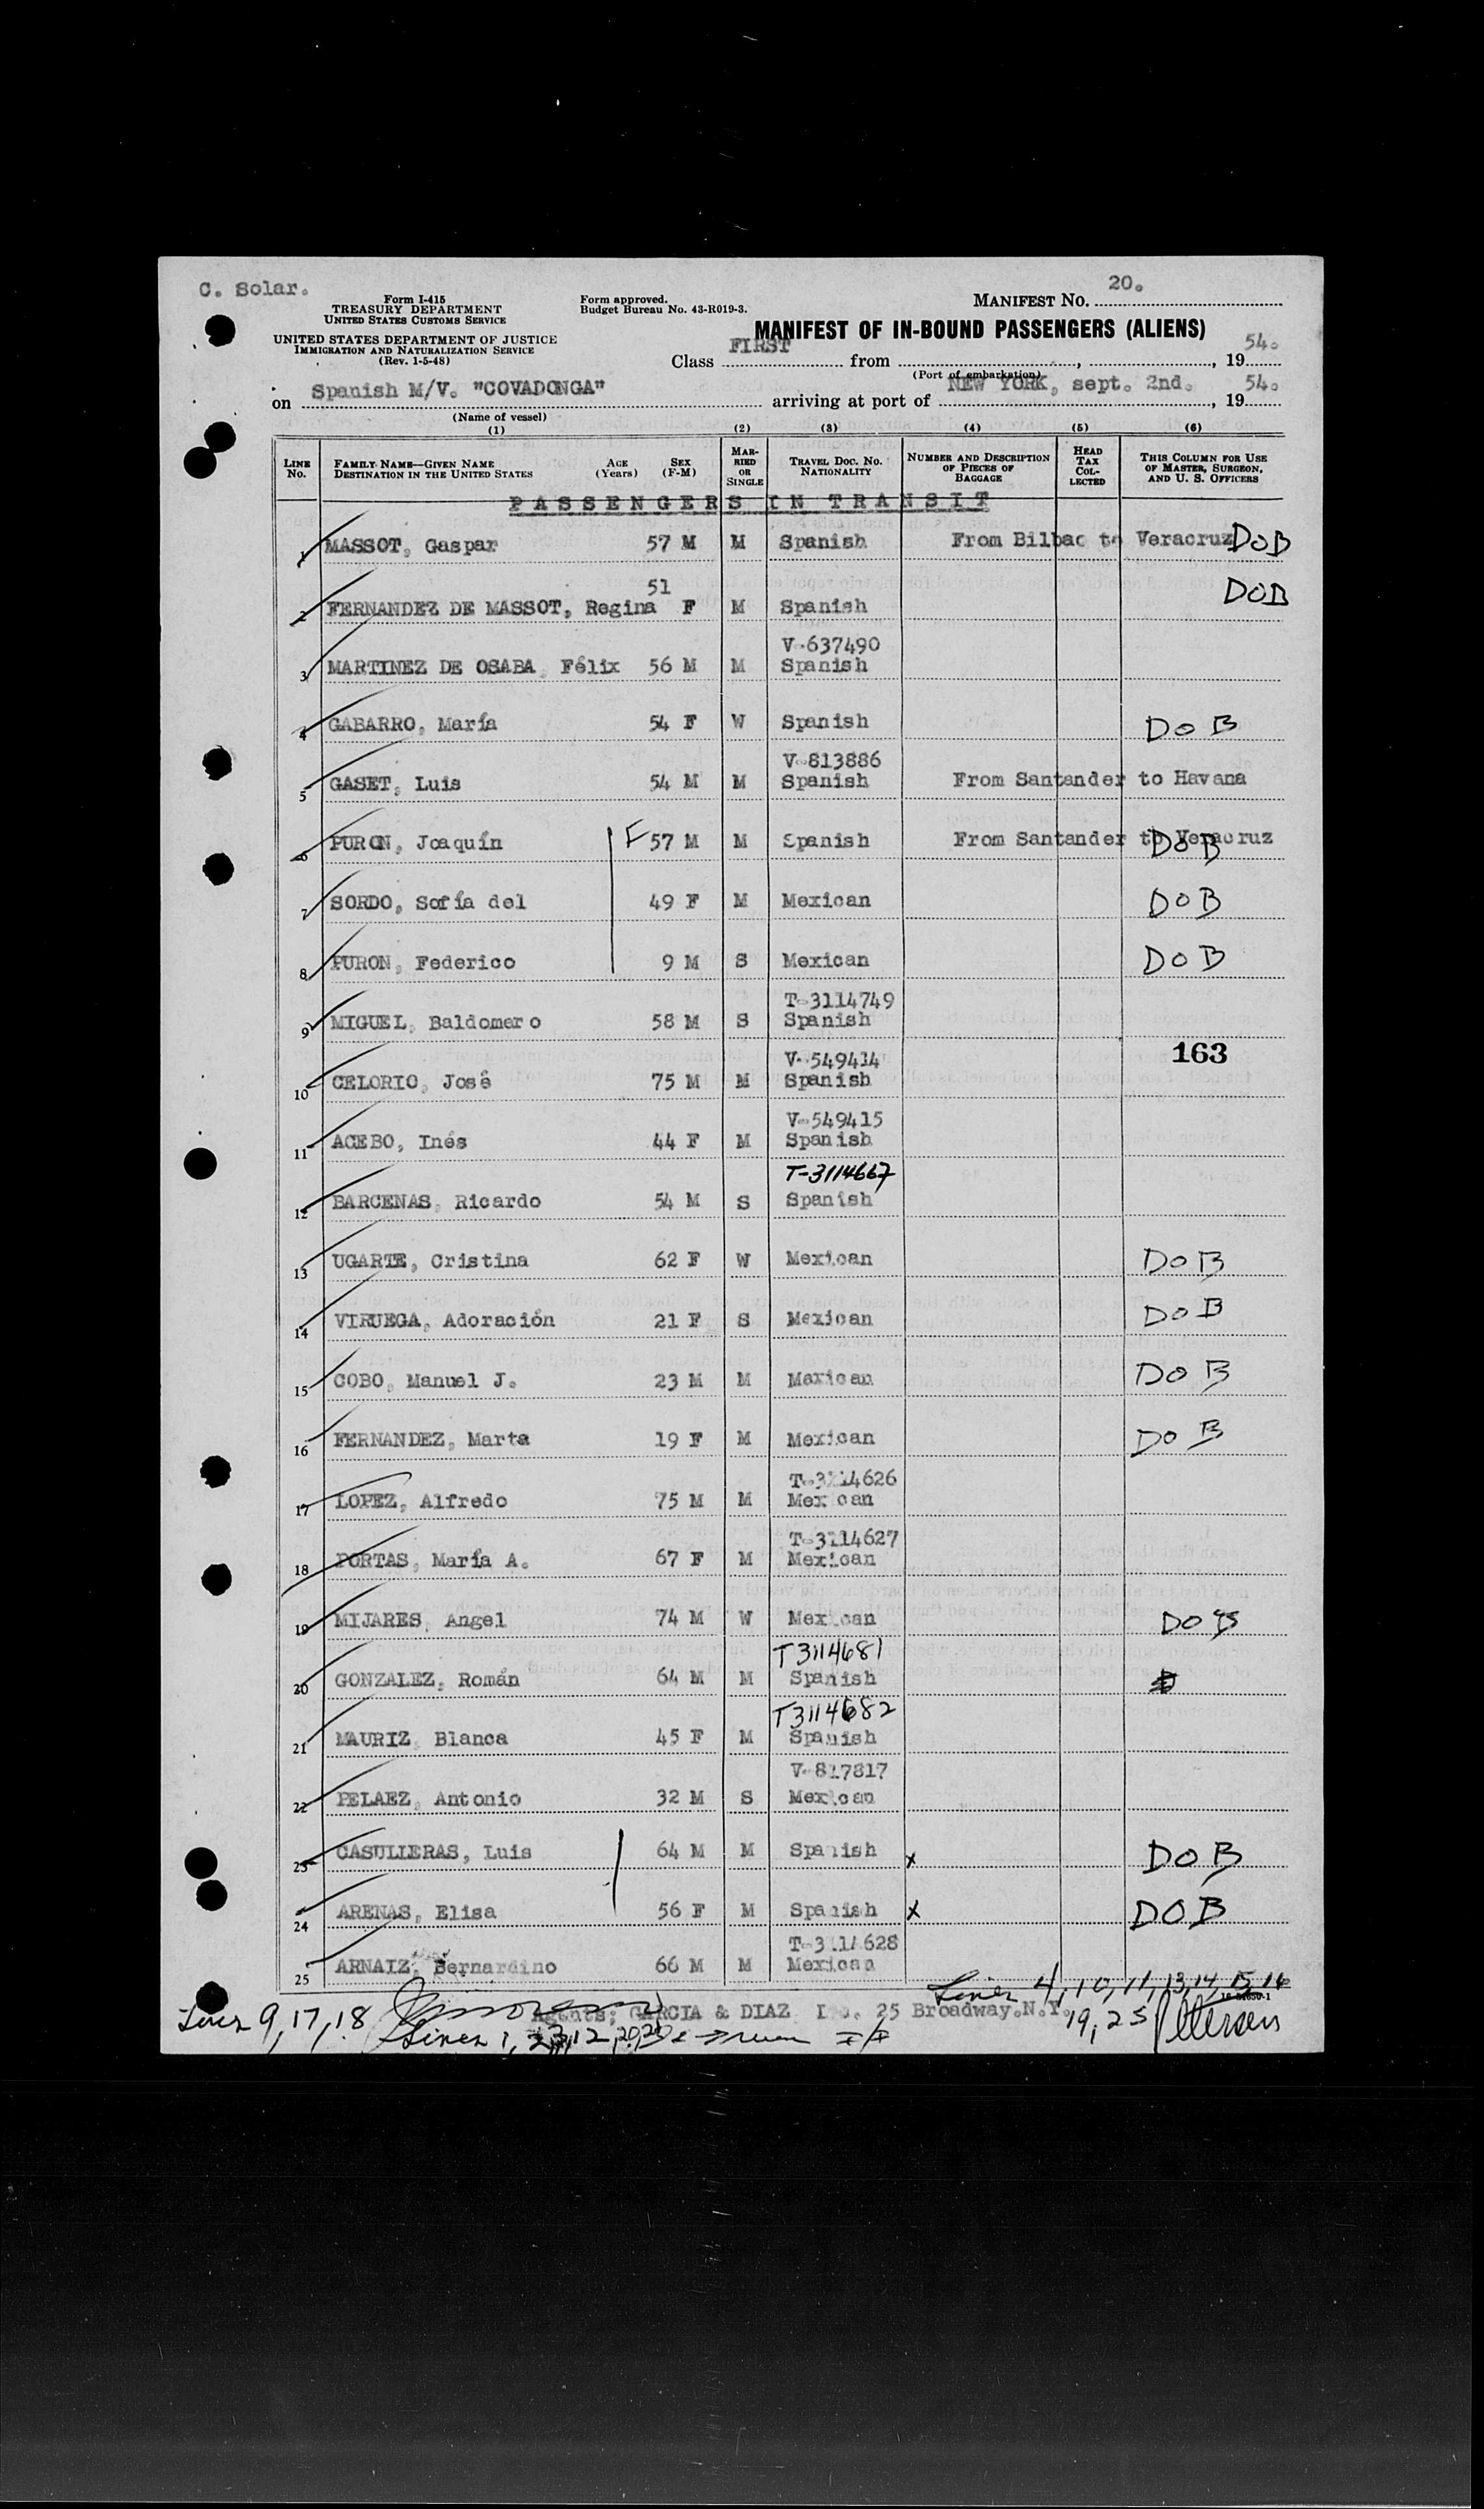 C. Solar.
20.
Form I-415
TREASURY DEPARTMENT
UNITED STATES CUSTOMS SERVICE
Form approved.
Budget Bureau No. 43-R019-3.
MANIFEST NO.
UNITED STATES DEPARTMENT OF JUSTICE
IMMIGRATION AND NATURALIZATION SERVICE
(Rev. 1-5-48)
MANIFEST OF IN-BOUND PASSENGERS (ALIENS)
Class FIRST from , , 19 54.
(Port of embarkation)
on Spanish M/V. "COVADONGA" arriving at port of NEW YORK, sept. 2nd. , 19 54.
(Name of vessel)
(1) (2) (3) (4) (5) (6)
LINE NO. FAMILY NAME—GIVEN NAME DESTINATION IN THE UNITED STATES AGE (Years) SEX (F-M) MARRIED OR SINGLE TRAVEL DOC. NO. NATIONALITY NUMBER AND DESCRIPTION OF PIECES OF BAGGAGE HEAD TAX COLLECTED THIS COLUMN FOR USE OF MASTER, SURGEON, AND U. S. OFFICERS
PASSENGERS IN TRANSIT
1 MASSOT, Gaspar 57 M M Spanish From Bilbao to Veracruz DOB
2 FERNANDEZ DE MASSOT, Regina 51 F M Spanish DOB
V-637490
3 MARTINEZ DE OSABA, Félix 56 M M Spanish
4 GABARRO, María 54 F W Spanish DOB
V-813886
5 GASET, Luis 54 M M Spanish From Santander to Havana
6 PURON, Joaquín F 57 M M Spanish From Santander to Veracruz DOB
7 SORDO, Sofía del 49 F M Mexican DOB
8 PURON, Federico 9 M S Mexican DOB
T-3114749
9 MIGUEL, Baldomero 58 M S Spanish
163
V-549414
10 CELORIO, José 75 M M Spanish
V-549415
11 ACEBO, Inés 44 F M Spanish
T-3114667
12 BARCENAS, Ricardo 54 M S Spanish
13 UGARTE, Cristina 62 F W Mexican DOB
14 VIRUEGA, Adoración 21 F S Mexican DOB
15 COBO, Manuel J. 23 M M Mexican DOB
16 FERNANDEZ, Marta 19 F M Mexican DOB
T-3114626
17 LOPEZ, Alfredo 75 M M Mexican
T-3114627
18 PORTAS, María A. 67 F M Mexican
19 MIJARES, Angel 74 M W Mexican DOB
T3114681
20 GONZALEZ, Román 64 M M Spanish
T3114682
21 MAURIZ, Blanca 45 F M Spanish
V-817817
22 PELAEZ, Antonio 32 M S Mexican
23 CASULLERAS, Luis 64 M M Spanish x DOB
24 ARENAS, Elisa 56 F M Spanish x DOB
T-3114628
25 ARNAIZ, Bernardino 66 M M Mexican
Lines 4, 10, 11, 13, 14, 15, 16
Lines 9, 17, 18
Agents; GARCIA & DIAZ Inc. 25 Broadway.N.Y.
19, 25 Petersen
Lines 1, 2, 3, 12, 20, 21